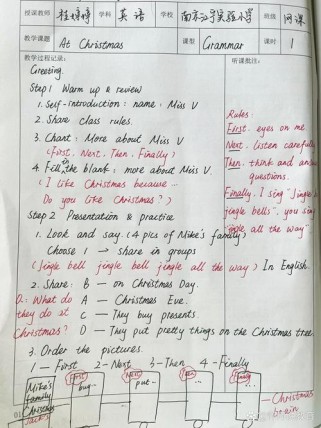 授课教师 桂婷婷 学科 英语 学校 南京江北实验小学 班级 网课
教学课题 At Christmas 课型 Grammar 课时 1
教学过程记录: 听课批注:
Greeting.
Step 1 Warm up & review
1. Self-introduction: name: Miss V
2. Share class rules.
3. Chant: More about Miss V
(First, Next, Then, Finally)
4. Fill in the blank: more about Miss V.
(I like Christmas because...
Do you like Christmas?)
Rules:
First, eyes on me
Next, listen carefully
Then, think and answer
questions.
Finally, I sing "jingle
jingle bells", you sing
"jingle all the way".
Step 2 Presentation & practice
1. Look and say. (4 pics of Mike's family)
Choose 1 → share in groups
(Jingle bell jingle bell jingle all the way) In English.
2. Share: B — on Christmas Day.
Q: What do A — Christmas Eve.
they do at C — They buy presents.
Christmas? D — They put pretty things on the Christmas tree.
3. Order the pictures.
1 - First 2 - Next 3 - Then 4 - Finally
Mike's
family
Christmas
First
buy...
Next
put...
Then
...
Finally
...
— Christmas
train